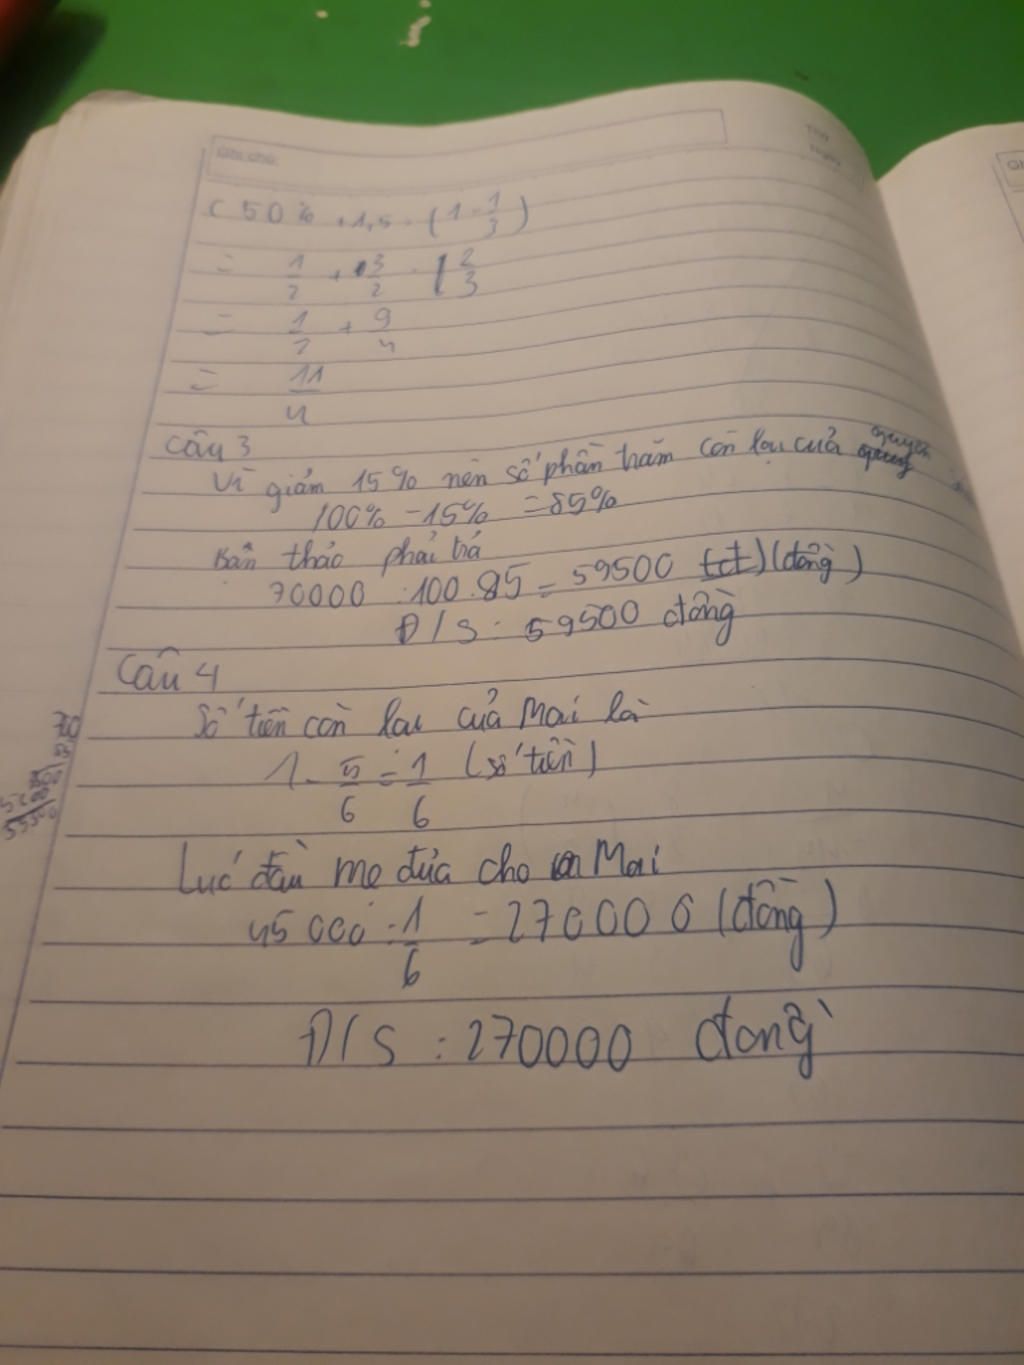 Ghi chú:
Thứ
Ngày
c 50% + 1,5 . (1 - 1/3)
= 1/2 + 3/2 . 2/3
= 1/2 + 9/4
= 11/4
Câu 3
Vì giảm 15% nên số phần trăm còn lại cuả quyen
100% - 15% = 85%
Bạn thảo phải trả
70000 : 100 . 85 = 59500 (đồng)
Đ/S : 59500 đồng
Câu 4
Số tiền còn lại cuả Mai là
1 - 5/6 = 1/6 (số tiền)
Lúc đầu mẹ đưa cho Mai
45000 : 1/6 = 270000 (đồng)
Đ/S : 270000 đồng